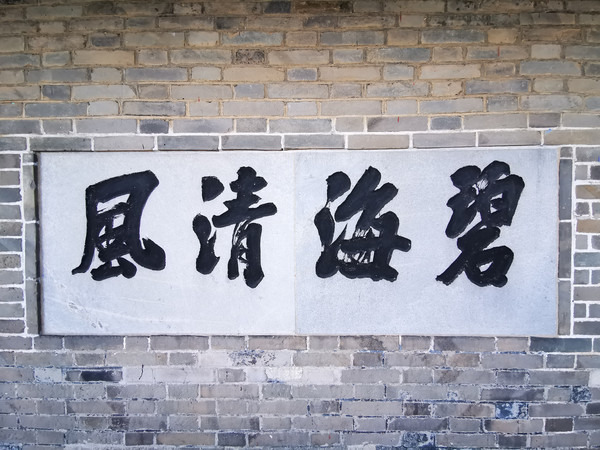 碧海清風